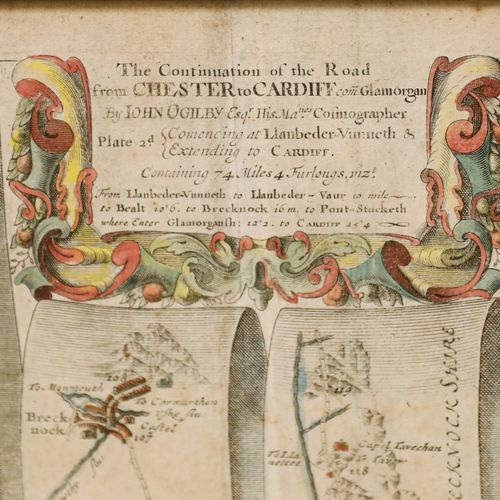 The Continuation of the Road
from CHESTER to CARDIFF com Glamorgan
By IOHN OGILBY Esqr. His Maties Cosmographer
Plate 2d Comencing at Llanbeder-Vunneth &
Extending to CARDIFF.
Containing 74 Miles 4 Furlongs, vizt.
From Llanbeder-Vunneth to Llanbeder-Vaur 10 mile
to Bealt 10'6. to Brecknock 16 m. to Pont-Stucketh
where Enter Glamorgansh: 12'2. to CARDIFF 25'4
108
To Monmouth
To Carmarthen
Uske flu
Breck
nock
Castel
107
flu
119
Capel Tavechan
To
118
BRECKNOCK SHIRE